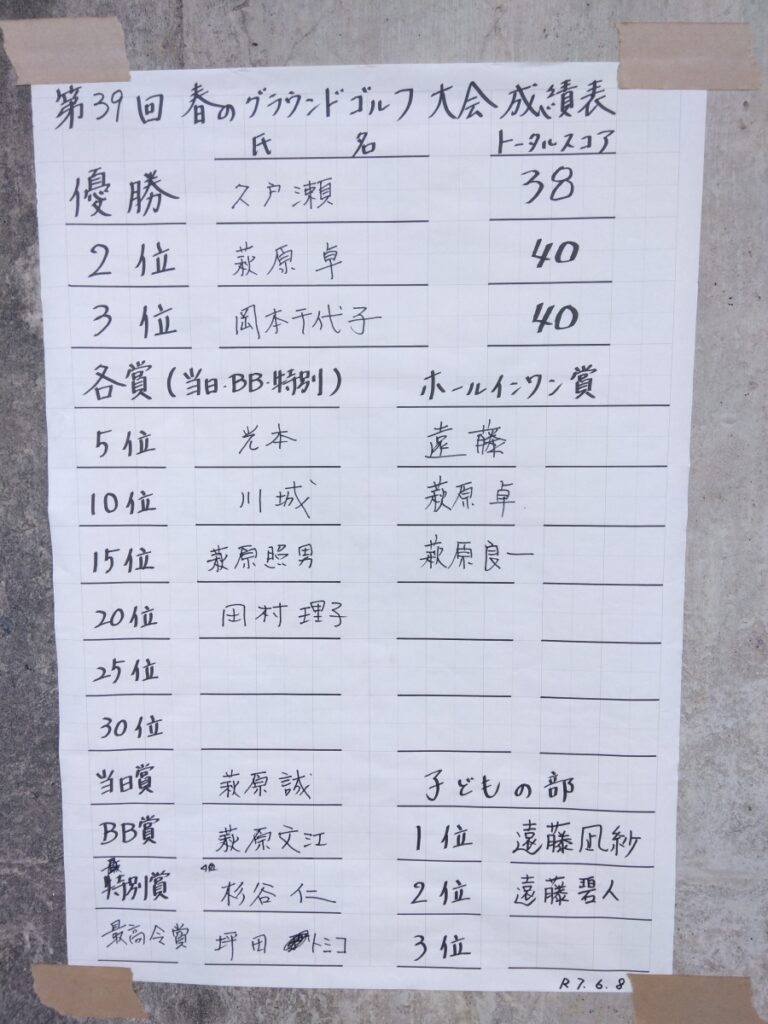 第39回 春のグラウンドゴルフ大会成績表
氏 名 トータルスコア
優勝 久戸瀬 38
2位 萩原 卓 40
3位 岡本千代子 40
各賞(当日・BB・特別) ホールインワン賞
5位 光本 遠藤
10位 川城 萩原 卓
15位 萩原照男 萩原良一
20位 田村理子
25位
30位
当日賞 萩原誠 子どもの部
BB賞 萩原文江 1位 遠藤凪紗
特別賞 杉谷 仁 2位 遠藤碧人
最高令賞 坪田 トミコ 3位
R7.6.8